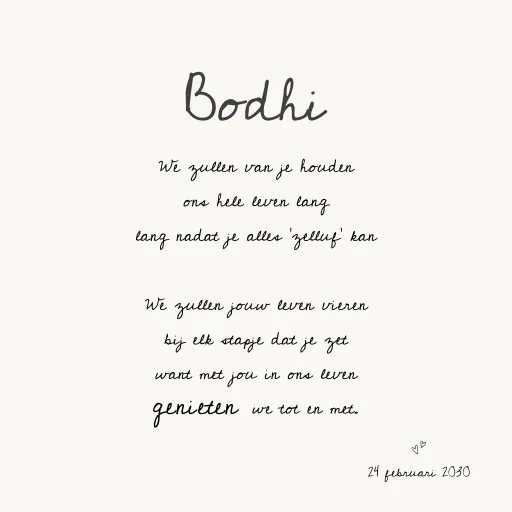 Bodhi
We zullen van je houden
ons hele leven lang
lang nadat je alles 'zelluf' kan
We zullen jouw leven vieren
bij elk stapje dat je zet
want met jou in ons leven
genieten we tot en met.
24 februari 2030